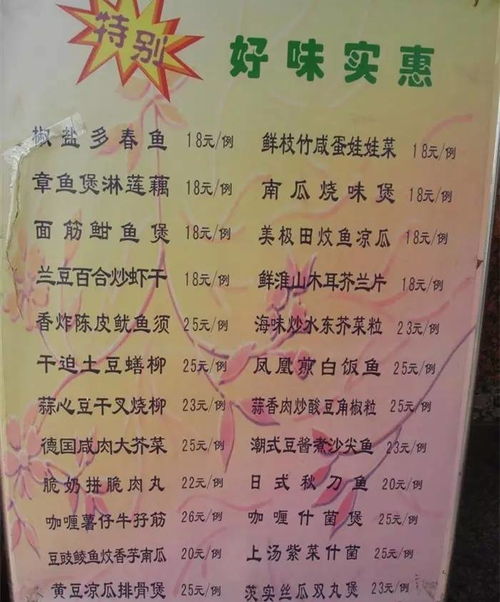 特别
好味实惠
椒盐多春鱼 18元/例
章鱼煲淋莲藕 18元/例
面筋鲋鱼煲 18元/例
兰豆百合炒虾干 18元/例
香炸陈皮鱿鱼须 25元/例
干迫土豆蟮柳 25元/例
蒜心豆干叉烧柳 23元/例
德国咸肉大芥菜 25元/例
脆奶拼脆肉丸 22元/例
咖喱薯仔牛孖筋 26元/例
豆豉鲮鱼炆香芋南瓜 20元/例
黄豆凉瓜排骨煲 25元/例
鲜枝竹咸蛋娃娃菜 18元/例
南瓜烧味煲 18元/例
美极田炆鱼凉瓜 18元/例
鲜淮山木耳芥兰片 18元/例
海味炒水东芥菜粒 23元/例
凤凰煎白饭鱼 25元/例
蒜香肉炒酸豆角椒粒 25元/例
潮式豆酱煮沙尖鱼 23元/例
日式秋刀鱼 20元/例
咖喱什菌煲 25元/例
上汤紫菜什菌 25元/例
茨实丝瓜双丸煲 23元/例